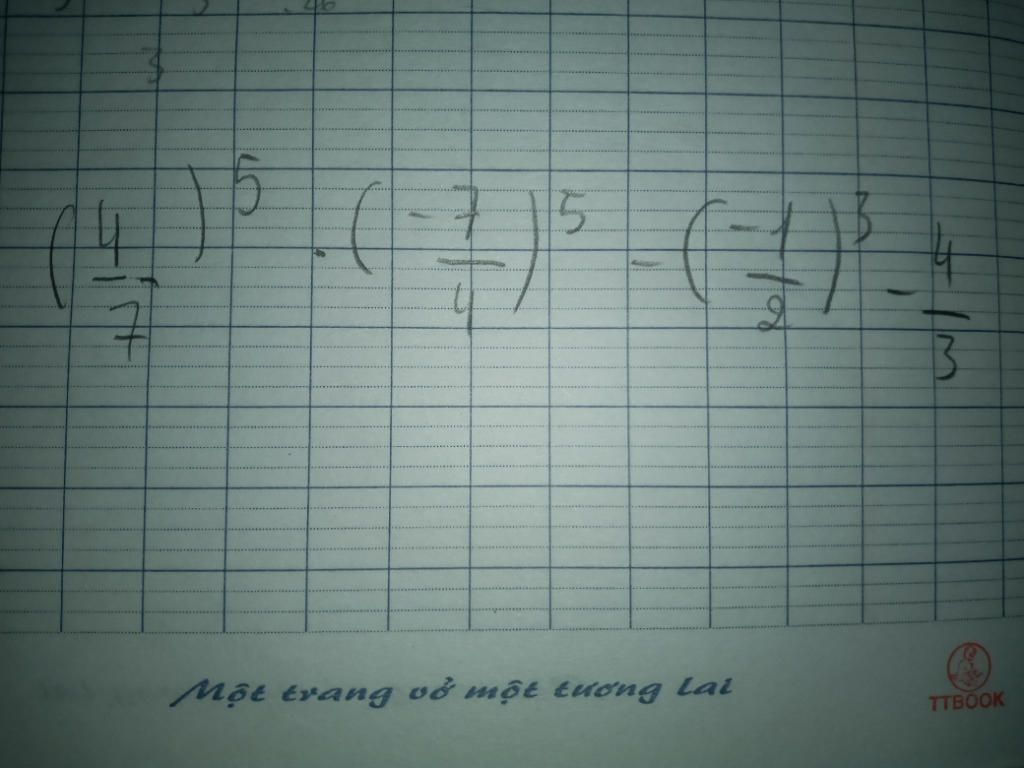 3
(4/7)^5 . (-7/4)^5 - (-1/2)^3 - 4/3
Một trang vở một tương lai
TTBOOK